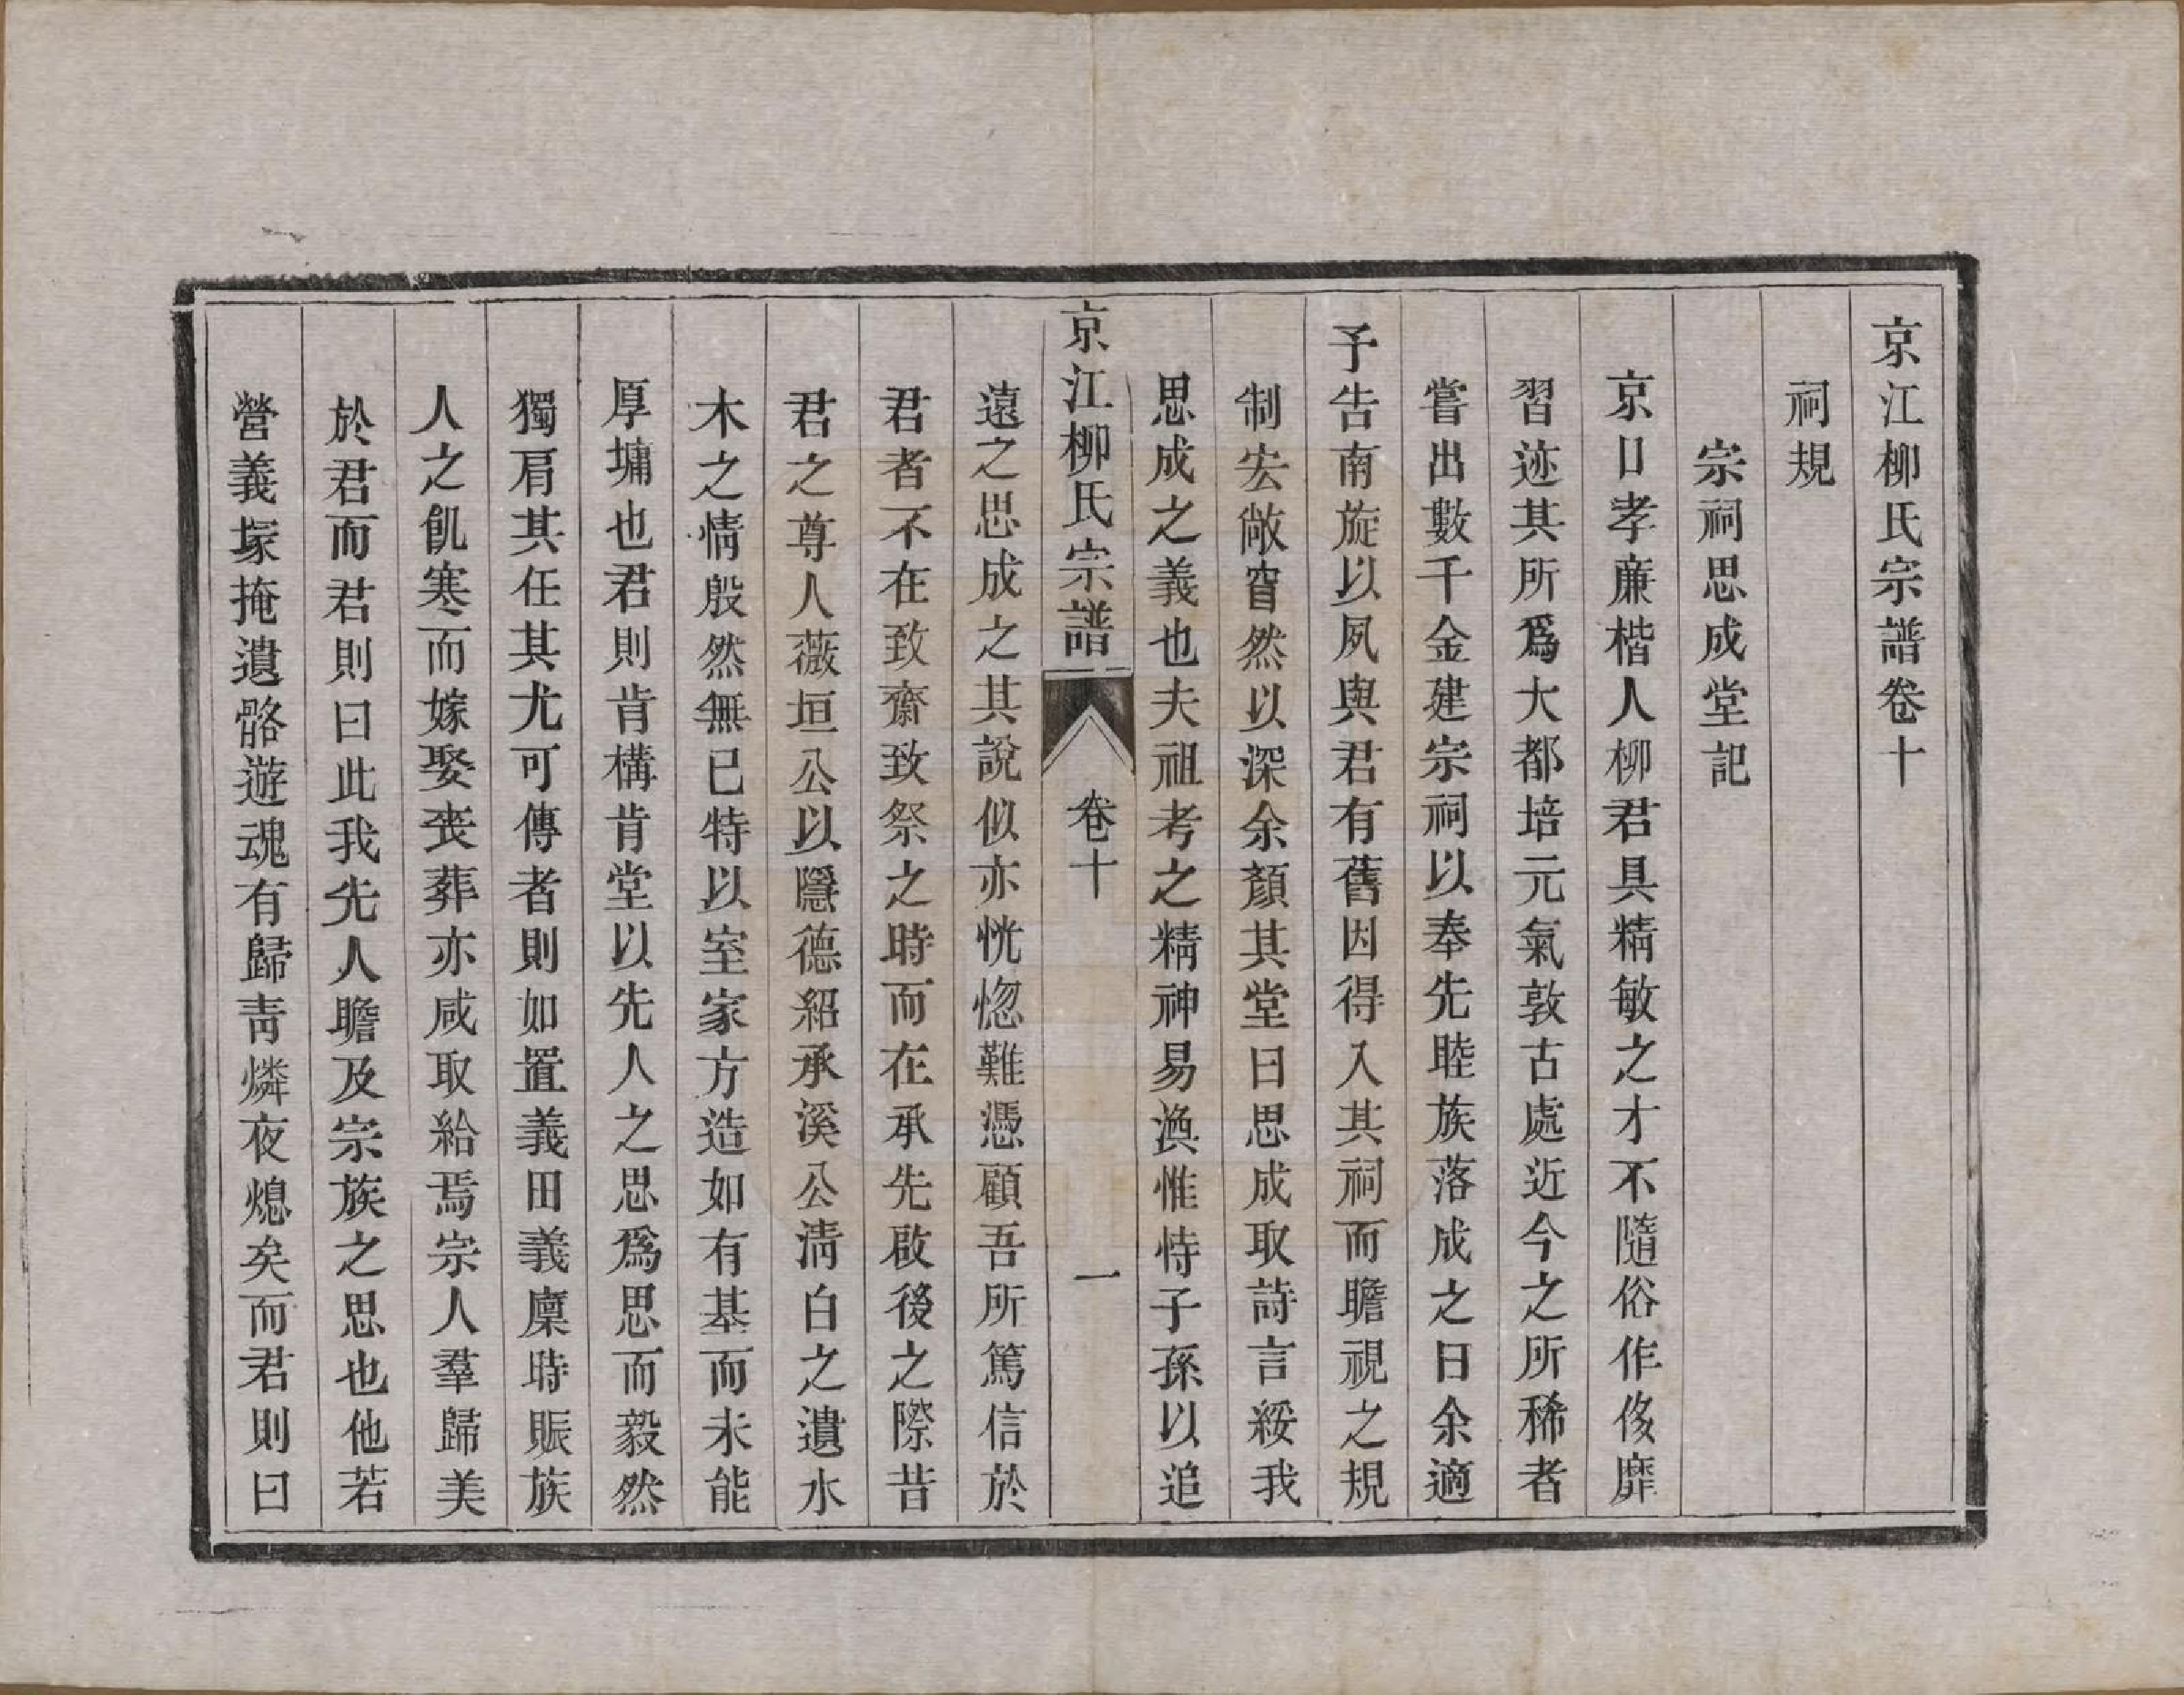 京江柳氏宗譜卷十
祠規
宗祠思成堂記
京口孝廉楷人柳君具精敏之才不隨俗作侈靡
習迹其所爲大都培元氣敦古處近今之所稀者
嘗出數千金建宗祠以奉先睦族落成之日余適
予告南旋以夙與君有舊因得入其祠而瞻視之規
制宏敞窅然以深余顏其堂曰思成取詩言綏我
思成之義也夫祖考之精神易渙惟恃子孫以追
京江柳氏宗譜 卷十 一
遠之思成之其說似亦恍惚難憑顧吾所篤信於
君者不在致齋致祭之時而在承先啟後之際昔
君之尊人薇垣公以隱德紹承溪公淸白之遺水
木之情殷然無已特以室家方造如有基而未能
厚墉也君則肯構肯堂以先人之思爲思而毅然
獨肩其任其尤可傳者則如置義田義廩時賑族
人之飢寒而嫁娶喪葬亦咸取給焉宗人羣歸美
於君而君則曰此我先人瞻及宗族之思也他若
營義塚掩遺骼遊魂有歸靑燐夜熄矣而君則曰